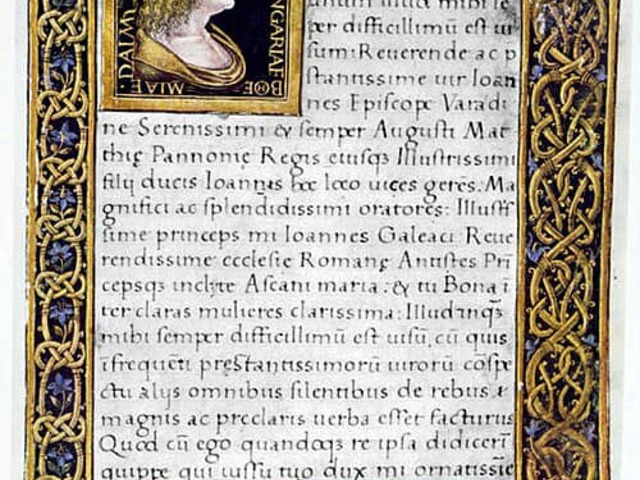 NGARIAE BOE MIAE DALM
per difficillimū est ui
sum: Reuerende ac p
stantissime uir Ioan
nes Episcope Varadi
ne Serenissimi & semper Augusti Mat
thię Pannonię Regis eiusqꝫ Illustrissimi
filij ducis Ioannis hoc loco uices gerēs: Ma
gnifici ac splendidissimi oratores: Illust
sime princeps mi Ioannes Galeaci Reue
rendissime ecclesie Romanę Antistes Prī
cepsqꝫ inclyte Ascani maria: & tu Bona ī
ter claras mulieres clarissima: Illud inqꝫ
mihi semper difficillimū est uisū, cū quis
ī frequēti pręstantissimorū uirorū cōspe
ctu alijs omnibus silentibus de rebus &
magnis ac preclaris uerba esset facturus
Quod cū ego quandoqꝫ re ipsa didicerī
quippe qui iussu tuo dux mi ornatissie